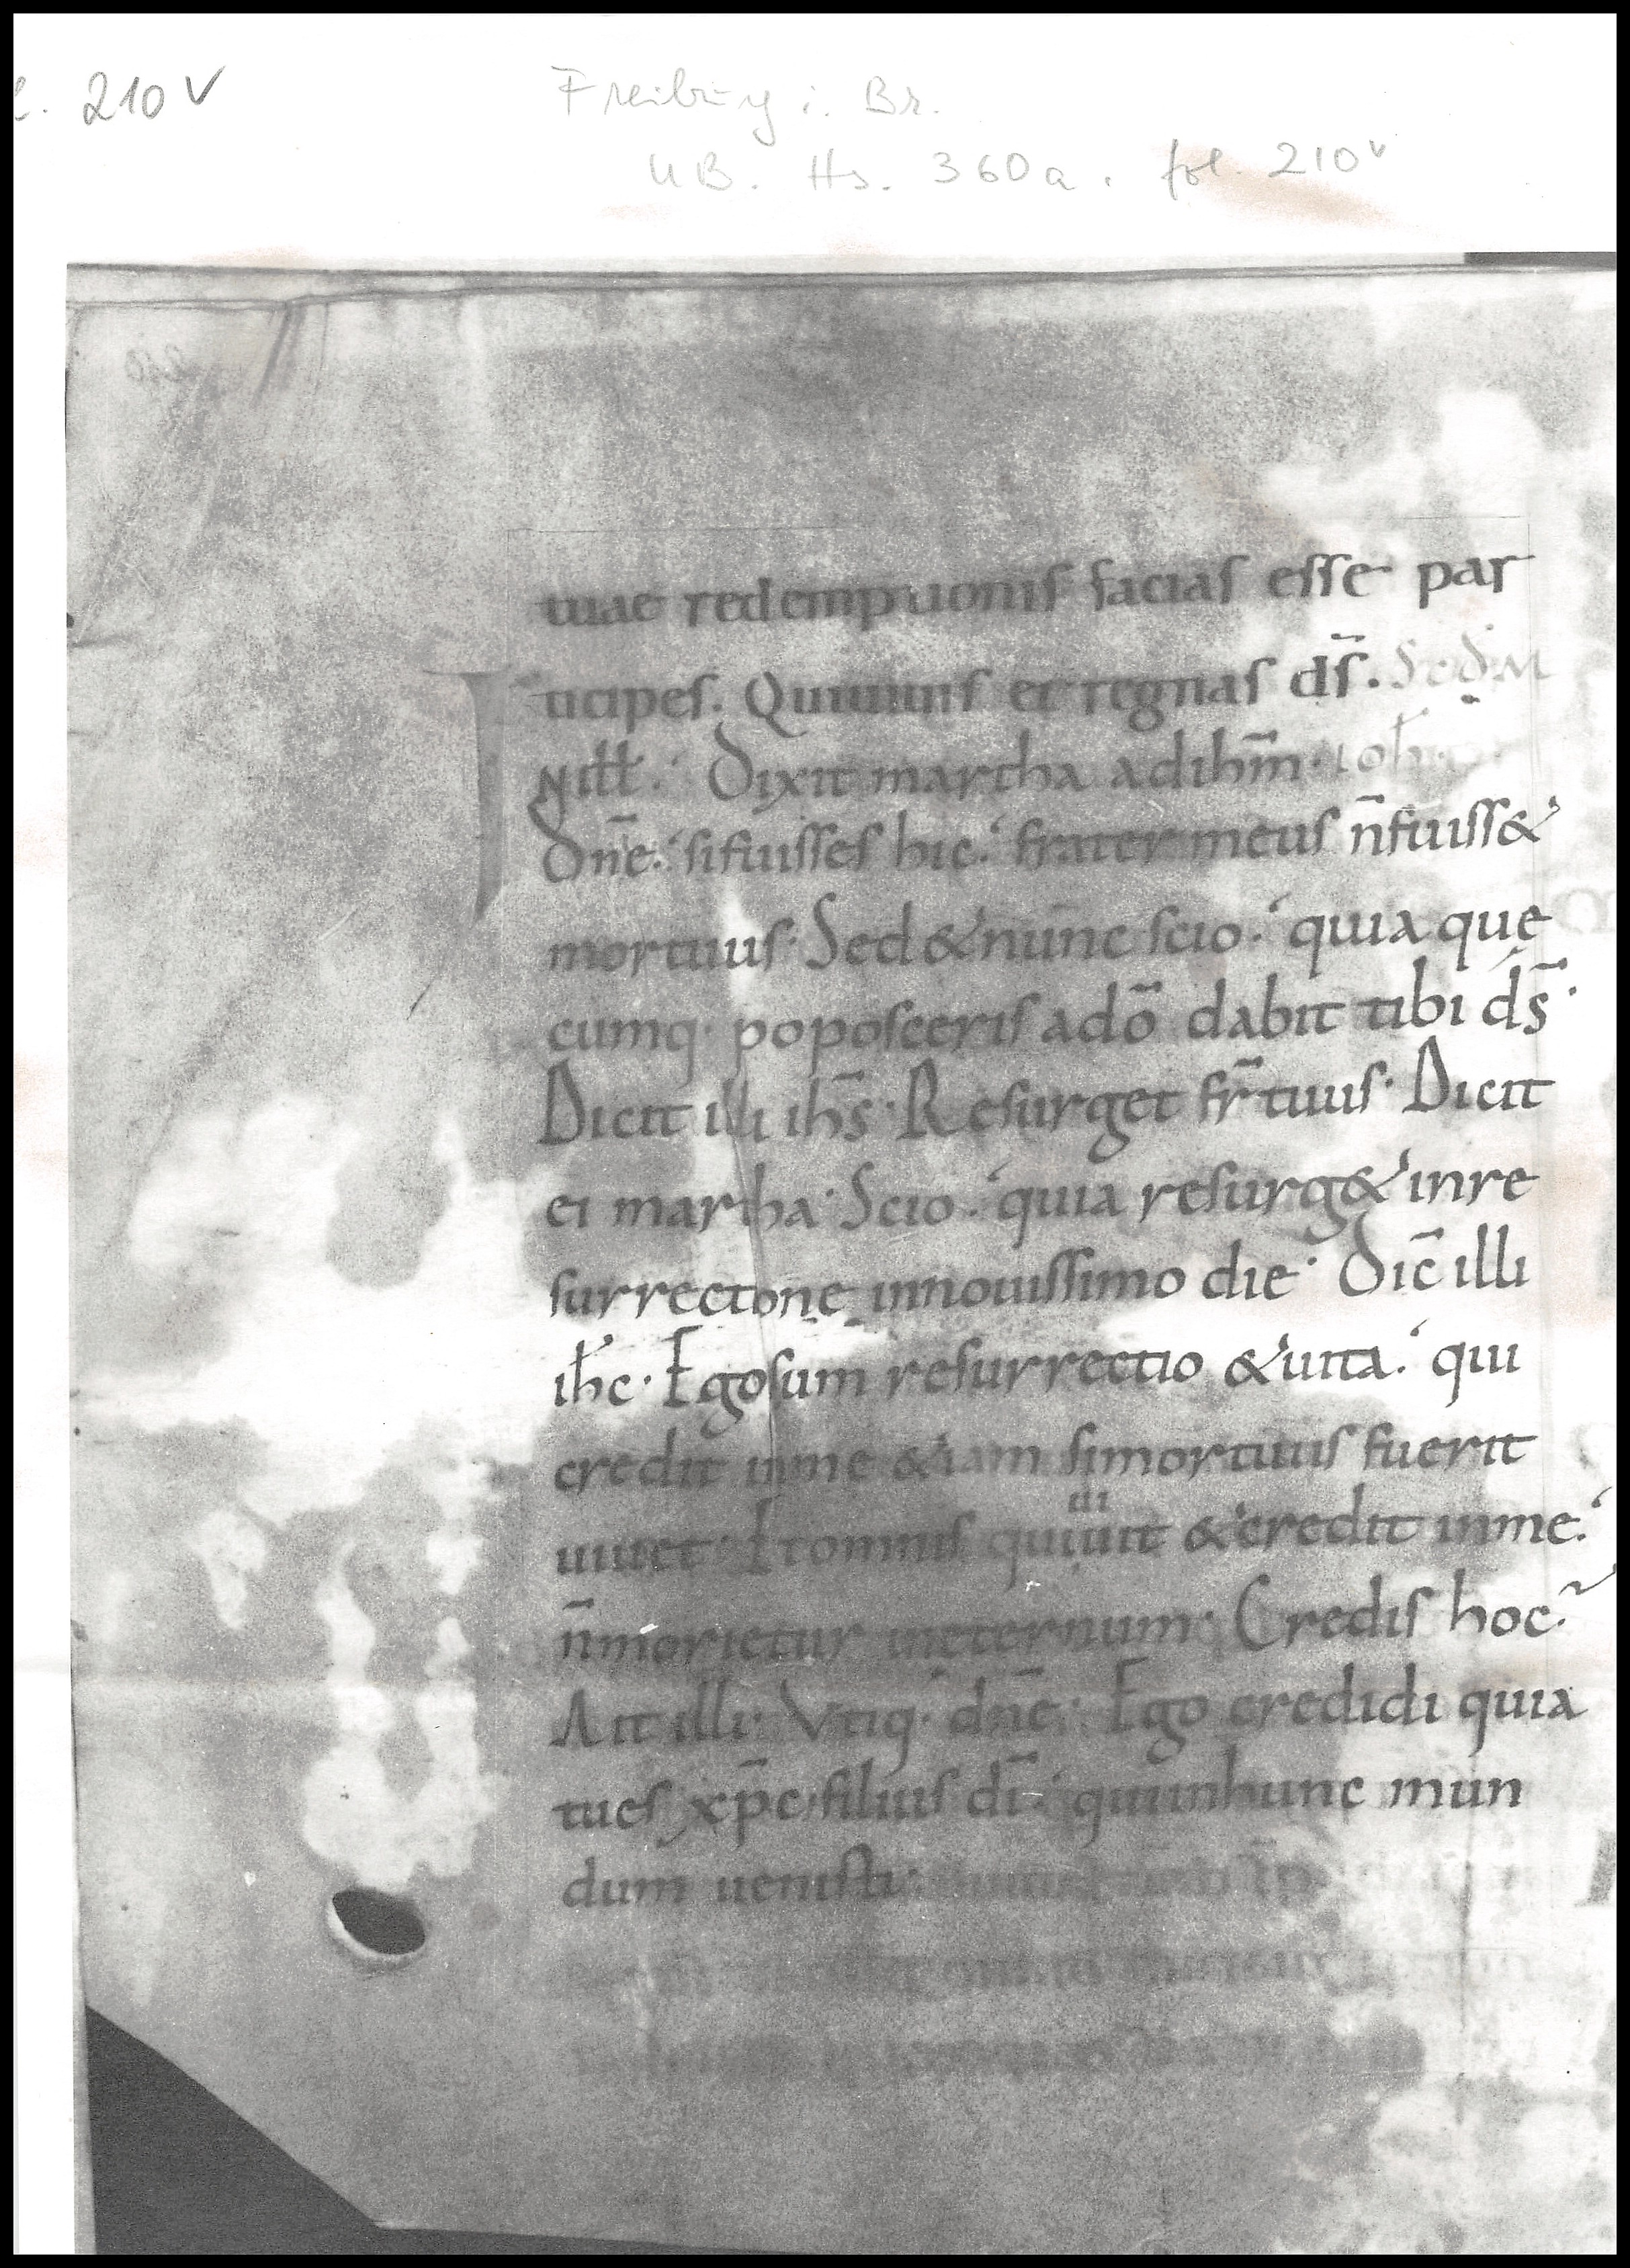 l. 210 v
Freiburg i. Br.
UB. Hs. 360a. fol. 210v
tuae redemptionis facias esse par
ticipes. Quiuiuis et regnas ds̄. Scd̄m
INiłł. Dixit martha adihm̄. ioh̄.
Dn̄e. sifuisses hic. frater meus n̄fuiss&
mortuus. Sed &nunc scio. quia quę
cumq. poposceris adō dabit tibi ds̄.
Dicit illi ihs̄. Resurget fr̄ tuus. Dicit
ei martha. Scio. quia resurg& inre
surrectione innouissimo die. Dic̄ illi
ihc̄. Egosum resurrectio &uita. qui
credit inme &iam simortuus fuerit
ui
uiuet. Etomnis quiuit &credit inme.
n̄morietur ineternum. Credis hoc?
Ait illi. Vtiq. dn̄e. Ego credidi quia
tues xp̄c filius dī. quiinhunc mun
dum uenisti.